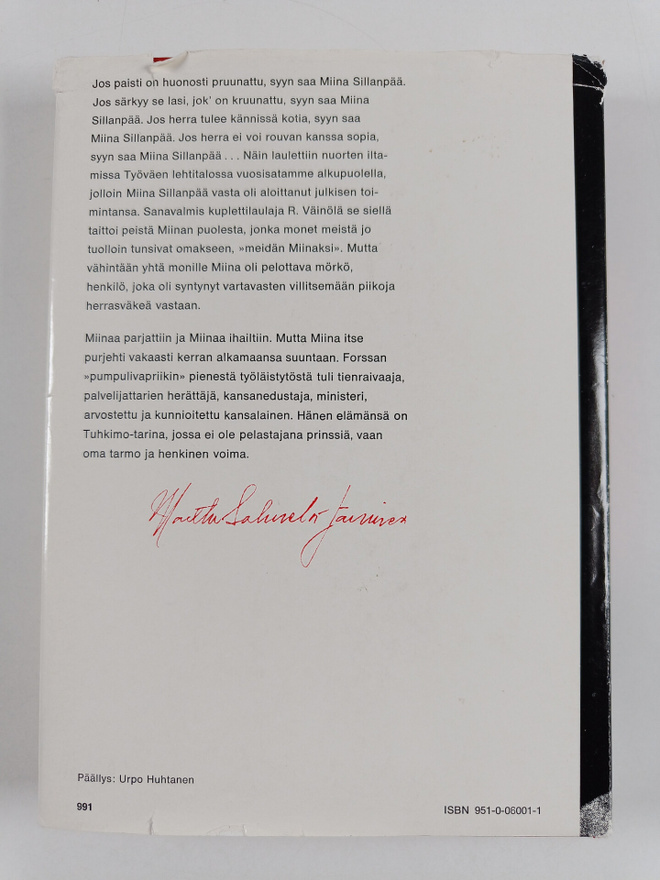 Jos paisti on huonosti pruunattu, syyn saa Miina Sillanpää.
Jos särkyy se lasi, jok' on kruunattu, syyn saa Miina
Sillanpää. Jos herra tulee kännissä kotia, syyn saa
Miina Sillanpää. Jos herra ei voi rouvan kanssa sopia,
syyn saa Miina Sillanpää . . . Näin laulettiin nuorten ilta-
missa Työväen lehtitalossa vuosisatamme alkupuolella,
jolloin Miina Sillanpää vasta oli aloittanut julkisen toi-
mintansa. Sanavalmis kuplettilaulaja R. Väinölä se siellä
taittoi peistä Miinan puolesta, jonka monet meistä jo
tuolloin tunsivat omakseen, »meidän Miinaksi». Mutta
vähintään yhtä monille Miina oli pelottava mörkö,
henkilö, joka oli syntynyt vartavasten villitsemään piikoja
herrasväkeä vastaan.
Miinaa parjattiin ja Miinaa ihailtiin. Mutta Miina itse
purjehti vakaasti kerran alkamaansa suuntaan. Forssan
»pumpulivapriikin» pienestä työläistytöstä tuli tienraivaaja,
palvelijattarien herättäjä, kansanedustaja, ministeri,
arvostettu ja kunnioitettu kansalainen. Hänen elämänsä on
Tuhkimo-tarina, jossa ei ole pelastajana prinssiä, vaan
oma tarmo ja henkinen voima.
Martta Salmela-Järvinen
Päällys: Urpo Huhtanen
991
ISBN 951-0-06001-1